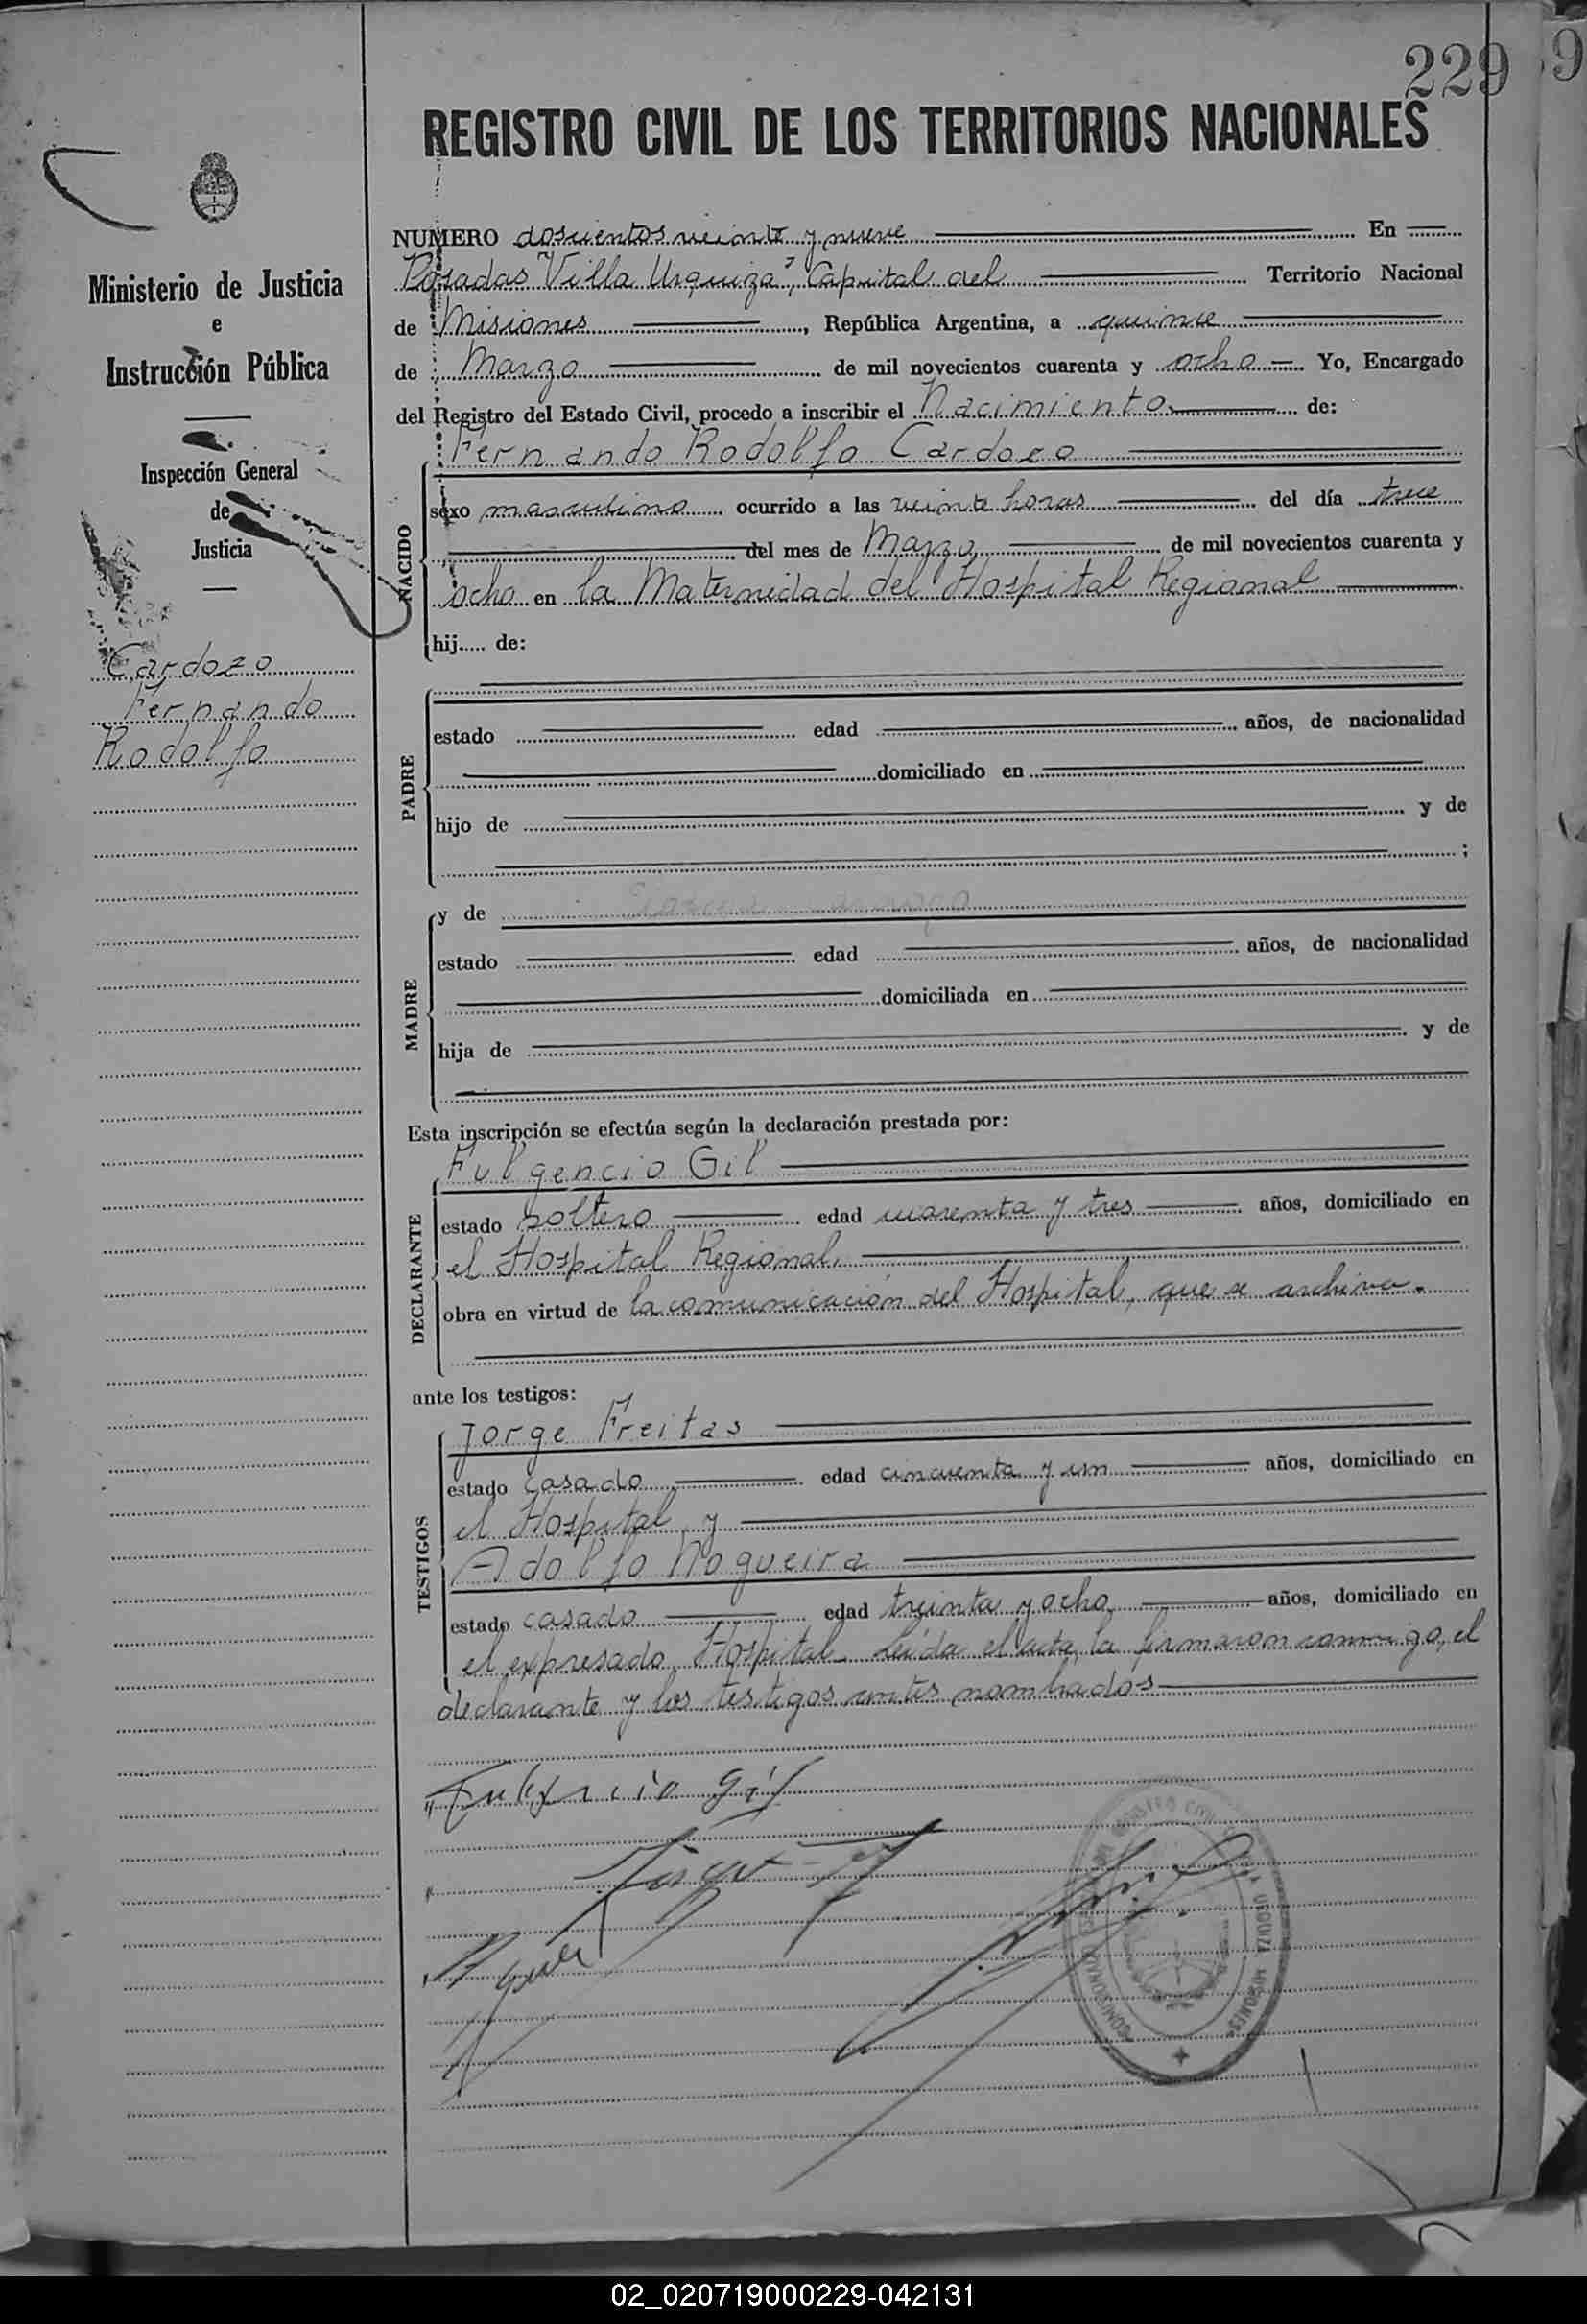 229
9
REGISTRO CIVIL DE LOS TERRITORIOS NACIONALES
Ministerio de Justicia
e
Instrucción Pública
Inspección General
de
Justicia
Cardozo
Fernando
Rodolfo
NUMERO doscientos veinte y nueve En
Posadas "Villa Urquiza", Capital del Territorio Nacional
de Misiones, República Argentina, a quince
de Marzo de mil novecientos cuarenta y ocho Yo, Encargado
del Registro del Estado Civil, procedo a inscribir el Nacimiento de:
Fernando Rodolfo Cardozo
NACIDO
sexo masculino ocurrido a las veinte horas del día trece
del mes de Marzo de mil novecientos cuarenta y
ocho en la Maternidad del Hospital Regional
hij..... de:
PADRE
estado edad años, de nacionalidad
domiciliado en
hijo de y de
;
MADRE
y de
estado edad años, de nacionalidad
domiciliada en
hija de y de
Esta inscripción se efectúa según la declaración prestada por:
DECLARANTE
Fulgencio Gil
estado soltero edad cuarenta y tres años, domiciliado en
el Hospital Regional,
obra en virtud de la comunicación del Hospital, que se archiva.
ante los testigos:
TESTIGOS
Jorge Freitas
estado casado edad cincuenta y un años, domiciliado en
el Hospital, y
Adolfo Nogueira
estado casado edad treinta y ocho años, domiciliado en
el expresado Hospital. Leída el acta, la firmaron conmigo, el
declarante y los testigos antes nombrados
Fulgencio Gil
REGISTRO CIVIL URQUIZA MISIONES
02_020719000229-042131